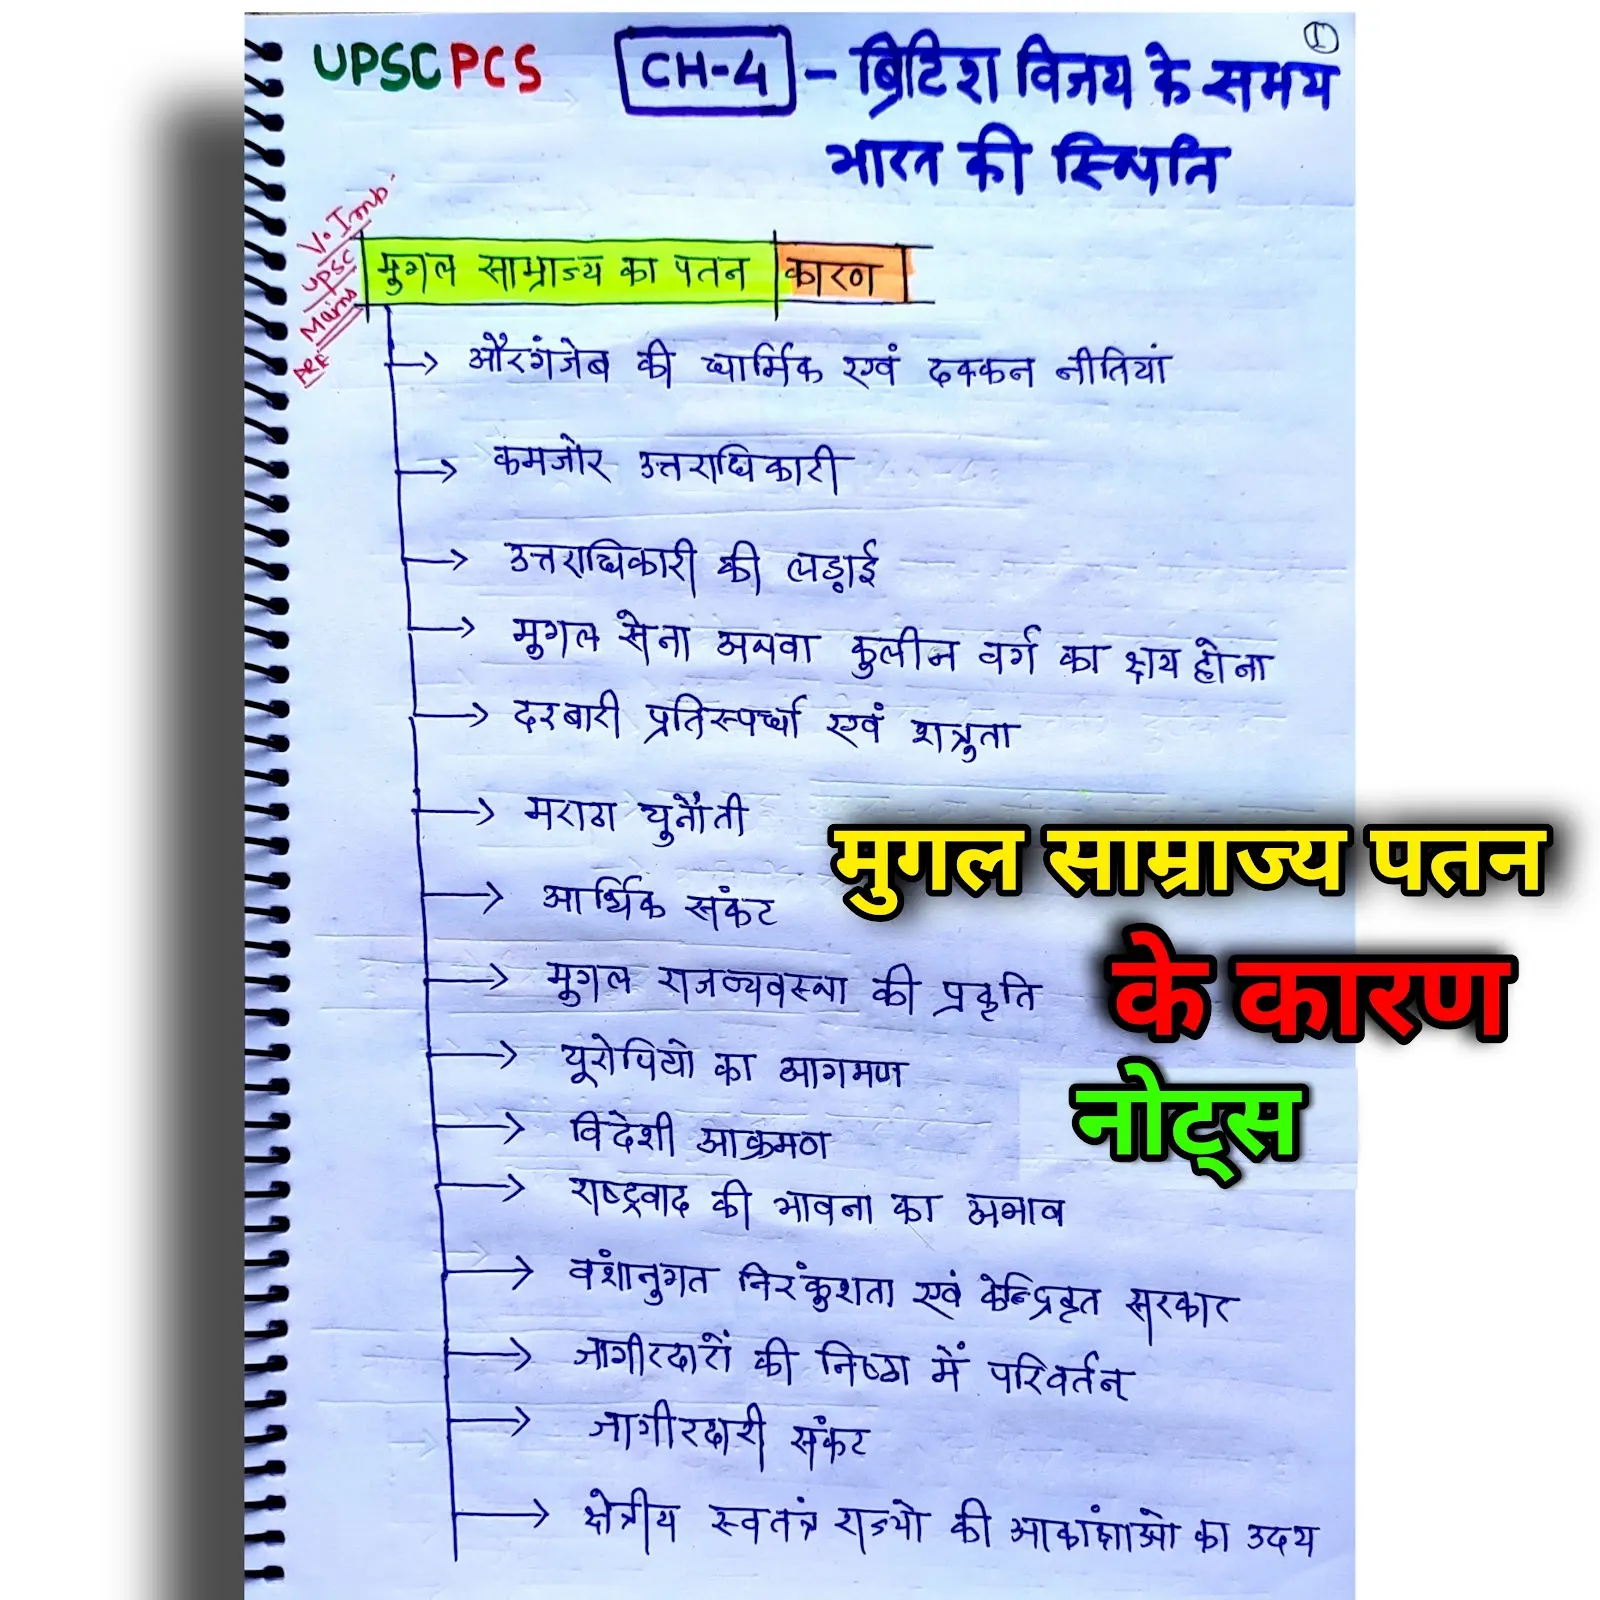 UPSC PCS CH-4 - ब्रिटिश विजय के समय
भारत की स्थिति
1
V. Imp.
UPSC
Mains
PRE
मुगल साम्राज्य का पतन कारण
→ औरंगजेब की धार्मिक एवं दक्कन नीतियां
→ कमजोर उत्तराधिकारी
→ उत्तराधिकारी की लड़ाई
→ मुगल सेना अथवा कुलीन वर्ग का क्षय होना
→ दरबारी प्रतिस्पर्धा एवं शत्रुता
→ मराठा चुनौती
→ आर्थिक संकट
→ मुगल राजव्यवस्था की प्रकृति
→ यूरोपियो का आगमण
→ विदेशी आक्रमण
→ राष्ट्रवाद की भावना का अभाव
→ वंशानुगत निरंकुशता एवं केन्द्रिकृत सरकार
→ जागीरदारों की निष्ठा में परिवर्तन
→ जागीरदारी संकट
→ क्षेत्रीय स्वतंत्र राज्यो की आकांक्षाओ का उदय
मुगल साम्राज्य पतन
के कारण
नोट्स